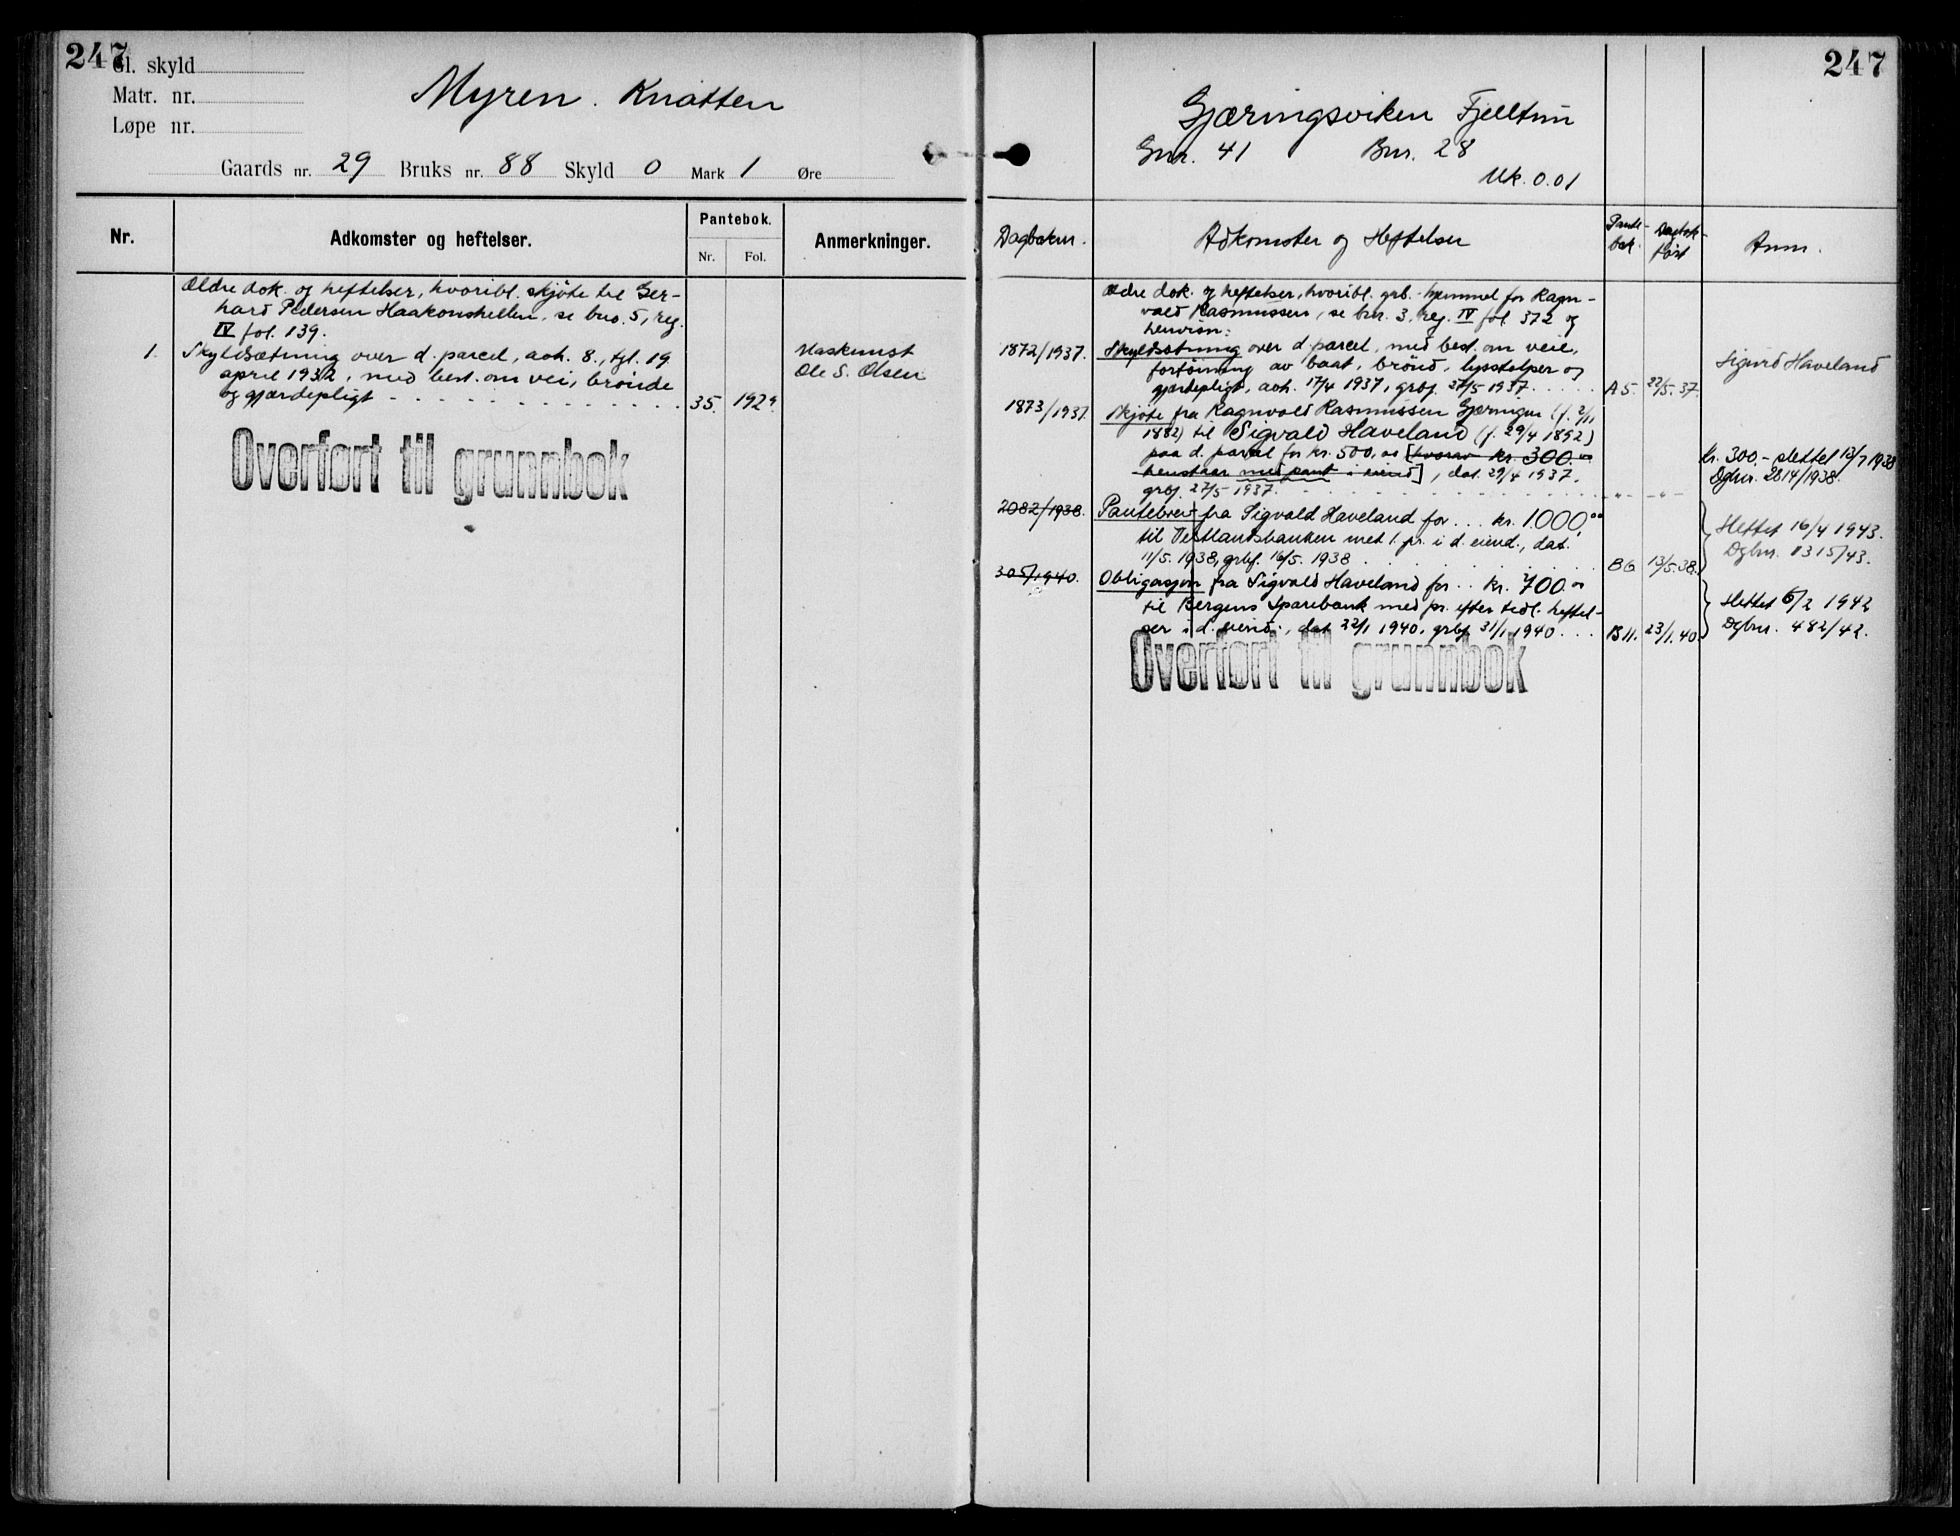 247
Gl. skyld
Matr. nr.
Løpe nr.
Myren. Knatten
Gaards nr. 29 Bruks nr. 88 Skyld 0 Mark 1 Øre
Nr.
Adkomster og heftelser.
Pantebok.
Nr. Fol.
Anmerkninger.
Ældre dok. og heftelser, hvoribl. skjøte til Ger-
hard Pedersen Haakonshellen, se bno. 5, reg.
IV fol. 139.
1. Skyldsætning over d. parcel, avh. 8., tgl. 19
april 1932, med best. om vei, brønde
og gjærdepligt 35. 1929.
Maskinist
Ole S. Olsen
Overført til grunnbok
247
Gjæringsviken Fjelltun
Gnr. 41 Bnr. 28
Mk. 0.01
Dagboknr.
Adkomster og Heftelser
Pante-
bok.
Dagbok-
ført
Anm.
Ældre dok. og heftelser, hvoribl. grb.-hjemmel for Ragn-
vald Rasmussen, se bnr. 3, reg. IV fol. 372 og
henvisn:
1872/1937. Skyldsætning over d. parcel, med best. om veie,
fortøining av baat, brønd, lysstolper og
gjærdepligt, avh. 17/4 1937, grbf. 27/5 1937. A5. 22/5.37.
Sigurd Haveland
1873/1937. Skjøte fra Ragnvald Rasmussen Gjæringen (f. 2/11
1882) til Sigvald Haveland (f. 29/4 1892)
paa d. parcel for kr. 500,00 [hvorav kr. 300.00
henstaar med pant i eiend], dat. 29/4 1937,
grbf. 27/5 1937. -"- -"-
kr. 300.- slettet 12/7 1938
Dgbnr. 2814/1938.
2082/1938. Pantebrev fra Sigvald Haveland for ... kr. 1000.00
til Vestlandsbanken med 1. pr. i d. eiend., dat.
11/5. 1938, grbf. 16/5. 1938 B6. 13/5.38.
Slettet 16/4 1943.
Dgbnr. 1315/43.
305/1940. Obligasjon fra Sigvald Haveland for .. kr. 700.00
til Bergens Sparebank med pr. efter tidl. heftel-
ser i d. eiend., dat. 22/1 1940, grbf. 31/1 1940 ... B11. 23/1.40.
Slettet 6/2 1942
Dgbnr. 482/42.
Overført til grunnbok